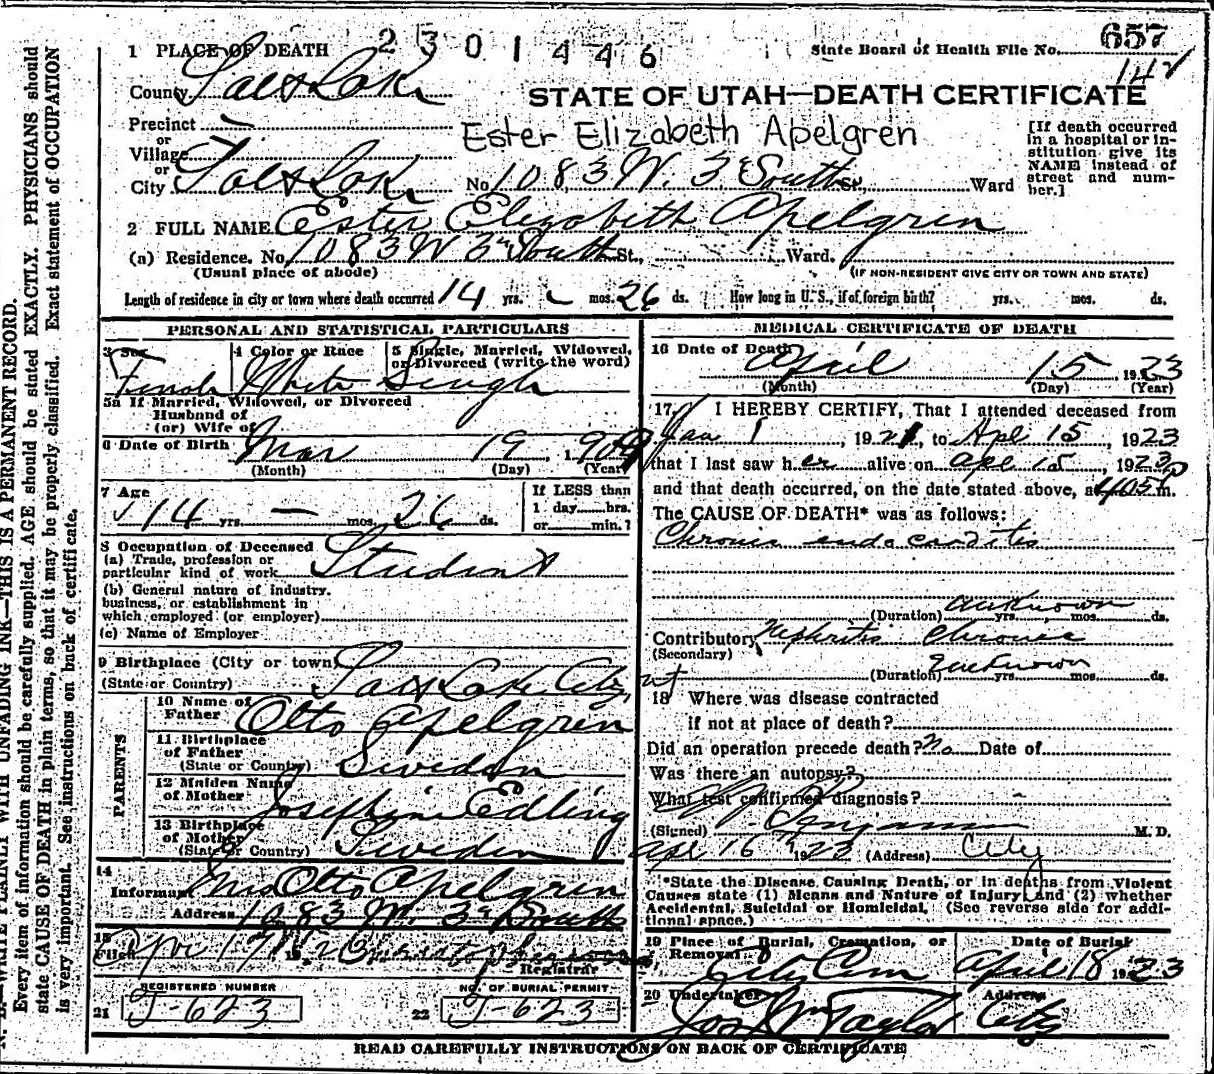 1 PLACE OF DEATH 2301446 State Board of Health File No. 657
County Salt Lake 142
STATE OF UTAH—DEATH CERTIFICATE
Precinct
or
Village
or
City Salt Lake
Ester Elizabeth Apelgren
No. 1083 W. 3d South St., Ward
[If death occurred in a hospital or institution give its NAME instead of street and number.]
2 FULL NAME Ester Elizabeth Apelgren
(a) Residence. No. 1083 W 3d South St., Ward.
(Usual place of abode) (IF NON-RESIDENT GIVE CITY OR TOWN AND STATE)
Length of residence in city or town where death occurred 14 yrs. — mos. 26 ds. How long in U. S., if of foreign birth? yrs. mos. ds.
PERSONAL AND STATISTICAL PARTICULARS
3 Sex 4 Color or Race 5 Single, Married, Widowed, or Divorced (write the word)
Female White Single
5a If Married, Widowed, or Divorced
Husband of
(or) Wife of
6 Date of Birth Mar 19, 1909
(Month) (Day) (Year)
7 Age If LESS than
14 yrs. — mos. 26 ds. 1 day hrs.
or min.?
8 Occupation of Deceased
(a) Trade, profession or
particular kind of work Student
(b) General nature of industry,
business, or establishment in
which employed (or employer)
(c) Name of Employer
9 Birthplace (City or town)
(State or Country) Salt Lake City
PARENTS
10 Name of
Father Otto Apelgren
11 Birthplace
of Father
(State or Country) Sweden
12 Maiden Name
of Mother Josephine Edling
13 Birthplace
of Mother
(State or Country) Sweden
14
Informant Mrs Otto Apelgren
Address 1083 W. 3d South
15
Filed Apr 17, 192
Registrar
REGISTERED NUMBER NO. OF BURIAL PERMIT
21 J-623 22 J-623
MEDICAL CERTIFICATE OF DEATH
16 Date of Death April 15, 1923
(Month) (Day) (Year)
17. I HEREBY CERTIFY, That I attended deceased from
Jan 1, 1921, to Apl 15, 1923
that I last saw her alive on Apl 15, 1923,
and that death occurred, on the date stated above, at 405 p m.
The CAUSE OF DEATH* was as follows:
Chronic endocarditis
(Duration) unknown yrs. mos. ds.
Contributory Nephritis Chronic
(Secondary)
(Duration) Unknown yrs. mos. ds.
18 Where was disease contracted
if not at place of death?
Did an operation precede death? No Date of
Was there an autopsy?
What test confirmed diagnosis?
(Signed) M. D.
Apl 16, 1923 (Address) City
*State the Disease Causing Death, or in deaths from Violent
Causes state (1) Means and Nature of Injury and (2) whether
Accidental, Suicidal or Homicidal. (See reverse side for additional space.)
19 Place of Burial, Cremation, or Removal Date of Burial
City Cem April 18 1923
20 Undertaker Address
Jos Wm Taylor City
READ CAREFULLY INSTRUCTIONS ON BACK OF CERTIFICATE
N. B.—WRITE PLAINLY WITH UNFADING INK—THIS IS A PERMANENT RECORD.
Every item of information should be carefully supplied. AGE should be stated EXACTLY. PHYSICIANS should
state CAUSE OF DEATH in plain terms, so that it may be properly classified. Exact statement of OCCUPATION
is very important. See instructions on back of certificate.